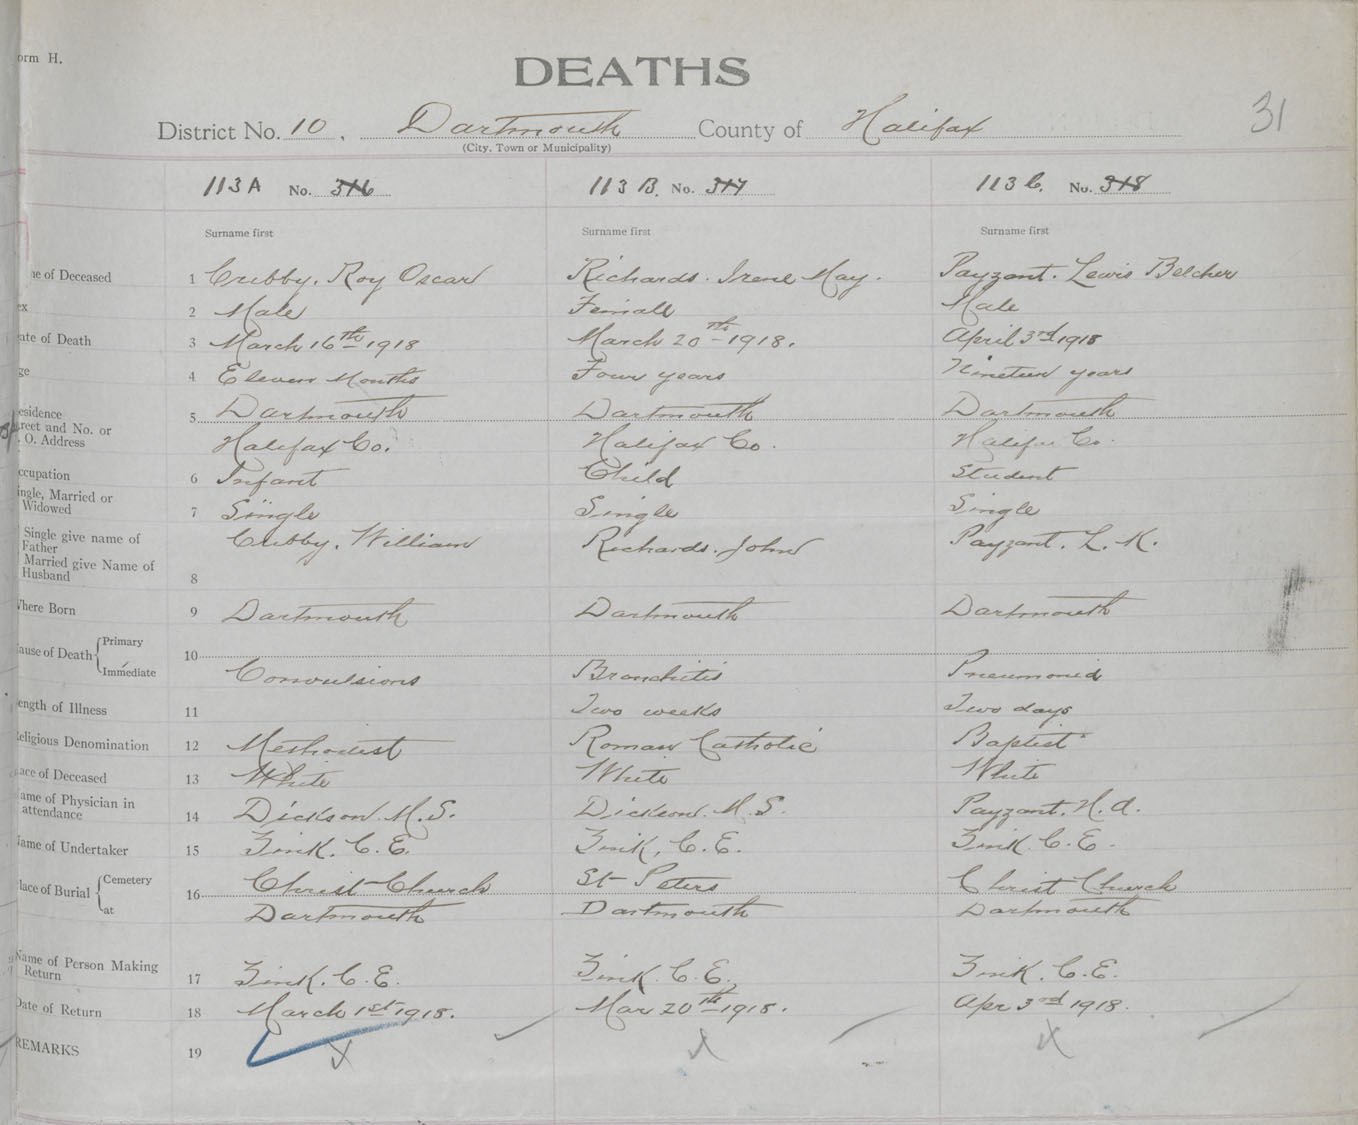 orm H.
DEATHS
31
District No. 10, Dartmouth County of Halifax
(City, Town or Municipality)
113A No. 316 113 B. No. 317 113 C. No. 318
Surname first Surname first Surname first
me of Deceased 1 Cribby, Roy Oscar Richards. Irene May. Payzant. Lewis Belcher
ex 2 Male Female Male
ate of Death 3 March 16th 1918 March 20th 1918. April 3rd 1918
ge 4 Eleven Months Four years Nineteen years
esidence 5 Dartmouth Dartmouth Dartmouth
treet and No. or
. O. Address Halifax Co. Halifax Co. Halifax Co.
ccupation 6 Infant Child Student
ingle, Married or
Widowed 7 Single Single Single
Single give name of
Father Cribby, William Richards, John Payzant. L. K.
Married give Name of
Husband 8
Where Born 9 Dartmouth Dartmouth Dartmouth
ause of Death { Primary 10
Immediate Convulsions Bronchitis Pneumonia
ength of Illness 11 Two weeks Two days
eligious Denomination 12 Methodist Roman Catholic Baptist
ace of Deceased 13 White White White
ame of Physician in
attendance 14 Dickson. M. S. Dickson. M. S. Payzant. H. A.
ame of Undertaker 15 Zink. C. E. Zink, C. E. Zink. C. E.
lace of Burial { Cemetery 16 Christ Church St Peters Christ Church
at Dartmouth Dartmouth Dartmouth
Name of Person Making
Return 17 Zink. C. E. Zink. C. E. Zink. C. E.
Date of Return 18 March 1st 1918. Mar 20th 1918. Apr 3rd 1918.
REMARKS 19 x x x